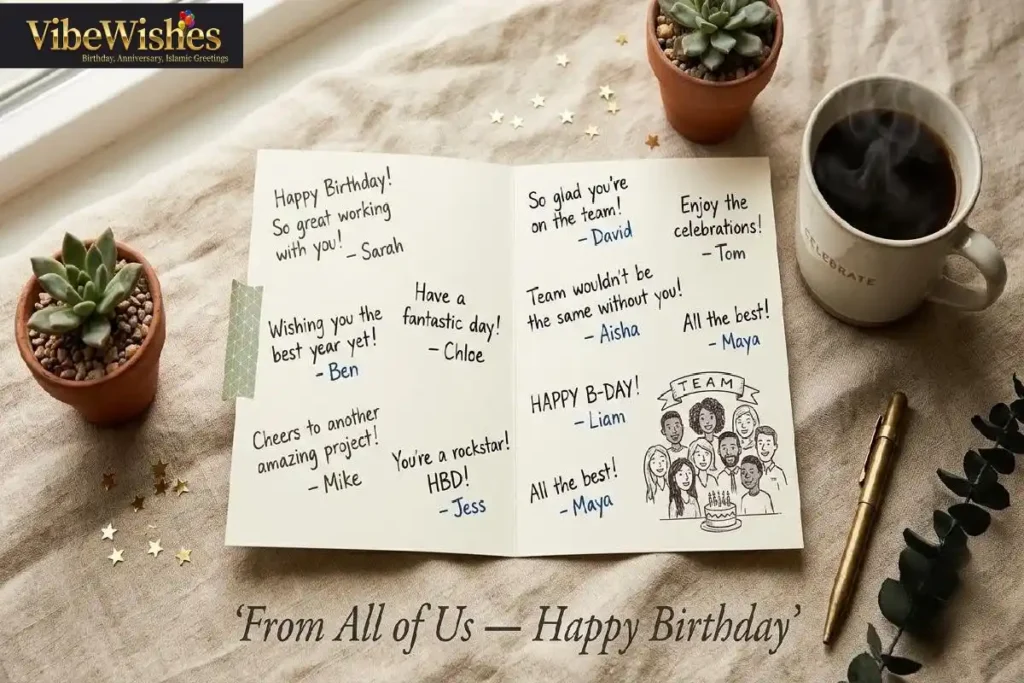 VibeWishes
Birthday, Anniversary, Islamic Greetings
Happy Birthday!
So great working
with you! – Sarah
Wishing you the
best year yet!
– Ben
Have a
fantastic day!
– Chloe
Cheers to another
amazing project!
– Mike
You're a rockstar!
HBD!
– Jess
So glad you're
on the team!
– David
Enjoy the
celebrations!
– Tom
Team wouldn't be
the same without you!
– Aisha
All the best!
– Maya
HAPPY B-DAY!
– Liam
All the best!
– Maya
TEAM
CELEBRATE
'From All of Us — Happy Birthday'